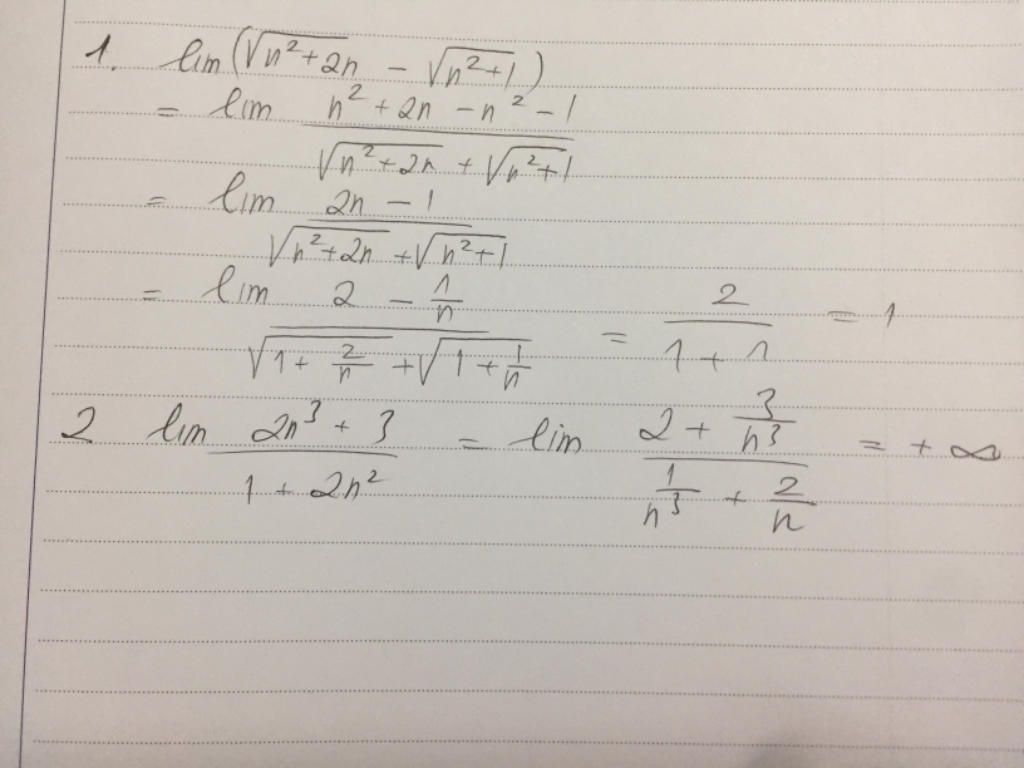 1. lim(√(n²+2n) - √(n²+1))
= lim (n² + 2n - n² - 1)/(√(n²+2n) + √(n²+1))
= lim (2n - 1)/(√(n²+2n) + √(n²+1))
= lim (2 - 1/n)/(√(1 + 2/n) + √(1 + 1/n)) = 2/(1 + 1) = 1
2 lim (2n³ + 3)/(1 + 2n²) = lim (2 + 3/n³)/(1/n³ + 2/n) = + ∞